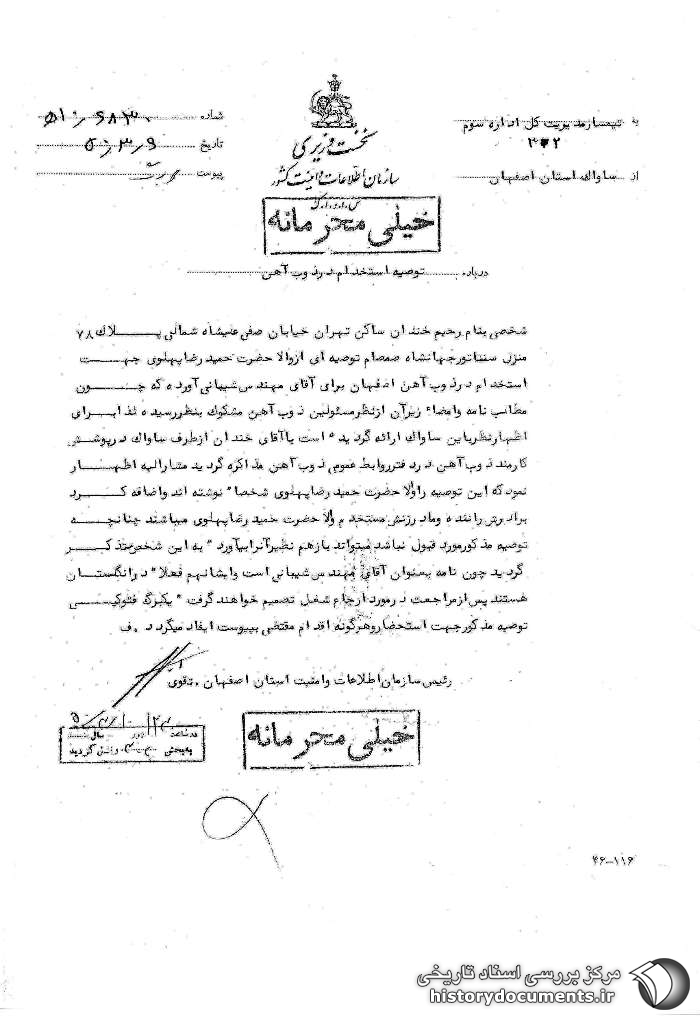 به تیمسار مدیریت کل اداره سوم
۳۲۲
از ساواک استان اصفهان
نخست وزیری
سازمان اطلاعات و امنیت کشور
س.ا.و.ا.ک
شماره
تاریخ ۵۰٫۳٫۹
پیوست
خیلی محرمانه
درباره توصیه استخدام در ذوب آهن
شخصی بنام رحیم خندان ساکن تهران خیابان صفی علیشاه شمالی پلاک ۷۸
منزل سناتور جهانشاه صمصام توصیه ای از والا حضرت حمید رضا پهلوی جهت
استخدام در ذوب آهن اصفهان برای آقای مهندس شیبانی آورده که چون
مطالب نامه و امضاء زیر آن از نظر مسئولین ذوب آهن مشکوک بنظر رسیده لذا برای
اظهار نظر باین ساواک ارائه گردیده است با آقای خندان از طرف ساواک در پوشش
کارمند ذوب آهن در دفتر روابط عمومی ذوب آهن مذاکره گردید مشارالیه اظهار
نمود که این توصیه را والا حضرت حمید رضا پهلوی شخصا" نوشته اند و اضافه کرد
برادرش راننده و مادر زنش مستخدم والا حضرت حمید رضا پهلوی میباشند چنانچه
توصیه مذکور مورد قبول نباشد میتواند باز هم نظیر آنرا بیاورد" به این شخص متذکر
گردید چون نامه بعنوان آقای مهندس شیبانی است و ایشانهم فعلا" در انگلستان
هستند پس از مراجعت در مورد ارجاع شغل تصمیم خواهند گرفت" یکبرگ فتوکپی
توصیه مذکور جهت استحضار و هرگونه اقدام مقتضی بپیوست ایفاد میگردد. ف
رئیس سازمان اطلاعات و امنیت استان اصفهان. تقوی
در ساعت روز سال
به بخش واصل گردید
خیلی محرمانه
۴۶-۱۱۶
مرکز بررسی اسناد تاریخی
historydocuments.ir